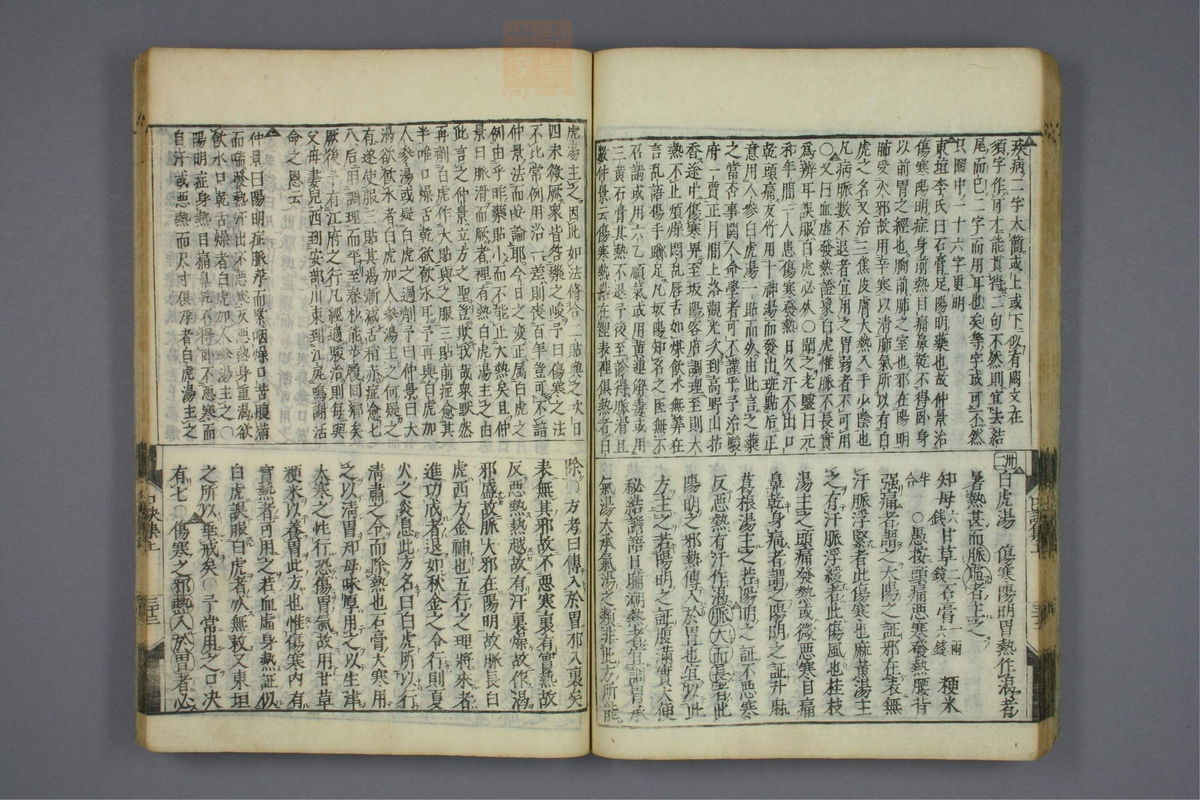 疾病二字大簡或上或下似有闕文在
東垣李氏曰石膏足陽明藥也故仲景治
傷寒陽明症身熱目痛鼻乾不得臥身大
以前胃之經也胸前肺之室也邪在陽明
肺受火邪故用辛寒以清肺氣所以有白
虎之名又治三焦皮膚大熱入手少陰也
凡病脈數不退者宜用之胃弱者不可用
○又曰血虛發熱證象白虎惟脈不長實
爲辨耳誤服白虎必死○聞之老醫曰元
和年間一人患傷寒發熱日久汗不出口
乾頭痛友竹用十神湯而發出班點后正
意用人參白虎湯一貼而愈
之當否事關人命學者可不謹乎予治驗
府一賣正月間上洛觀光
熱不止煩燥悶亂唇舌如煤飲水無筭在
言乱語傷手躑足凡坂陽知名之医無不
三黃石膏其熱不退予後至診得脈滑且
數仲景云傷寒熱結在裡表裡俱熱者白
白虎湯 傷寒陽明胃熱作渴者
暑熱甚而脈虛者主之
知母六錢甘草二錢石膏一兩六錢 粳米一合
○愚按頭痛惡寒發熱腰背
强痛者謂之太陽之証邪在表無
汗脈浮緊者此傷寒也麻黃湯主
之有汗脈浮緩者此傷風也桂枝
湯主之頭痛發熱或微惡寒目痛
鼻乾身痛者謂之陽明之証升麻
葛根湯主之若陽明之証不惡寒
反惡熱有汗作渴脈大而長者此
陽明之邪熱傳入於胃也宜以此
方主之若陽明之証腹滿實大便
秘結譫語日晡潮熱者宜調胃承
氣湯大承氣湯之類非此方所能
虎湯主之因此如法修合二貼與之次日
四末微厥衆皆咎藥之峻予曰傷寒之法
不比常例用治一差則喪百年豈可不諳
仲景法而峻論耶今日之变正属白虎之
例由乎昨藥貼小而不能止大熱矣且仲
景曰脈滑而厥者裡有熱白虎湯主之由
此言之仲景立方之聖豈欺我哉衆默然
再劑白虎作大貼與之服三貼前症愈其
半唯口燥舌乾欲飲水耳予再與白虎加
人參湯或疑白虎之過劑予曰仲景曰大
渴欲飲水者白虎加人參湯主之何疑之
有遂使服三貼其渴漸減舌稍亦症愈七
八后用調理而平至春杪能步履回鄉矣
厥後予有江府之行凡經過駿治則每與
父母妻兒西到安部川東到江尻鳴謝活
命之恩云
仲景曰陽明症脈浮而緊咽燥口苦腹滿
而喘發熱汗出不惡寒反惡熱身重渴欲
飲水口乾舌燥者白虎加人參湯主之○
陽明症身熱目痛鼻乾不得臥不惡寒而
自汗或惡熱而尺寸俱浮者白虎湯主之
除○方考曰傳入於胃邪入裏矣
表無其邪故不惡寒裏有實熱故
反惡熱熱越故有汗裏燥故作渴
邪盛故脈大邪在陽明故脈長白
虎西方金神也五行之理將來者
進功成者退如秋金之令行則夏
火之炎息此方名曰白虎所以行
淸肅之令而除熱也石膏大寒用
之以清胃知母味厚用之以生津
大寒之性行恐傷胃氣故用甘草
粳米以養胃此方也惟傷寒內有
實熱者可用之若血虛身熱証似
白虎誤服白虎者死無救又東垣
之所以垂戒矣○予常用之口決
有七○傷寒之邪熱入於胃者必